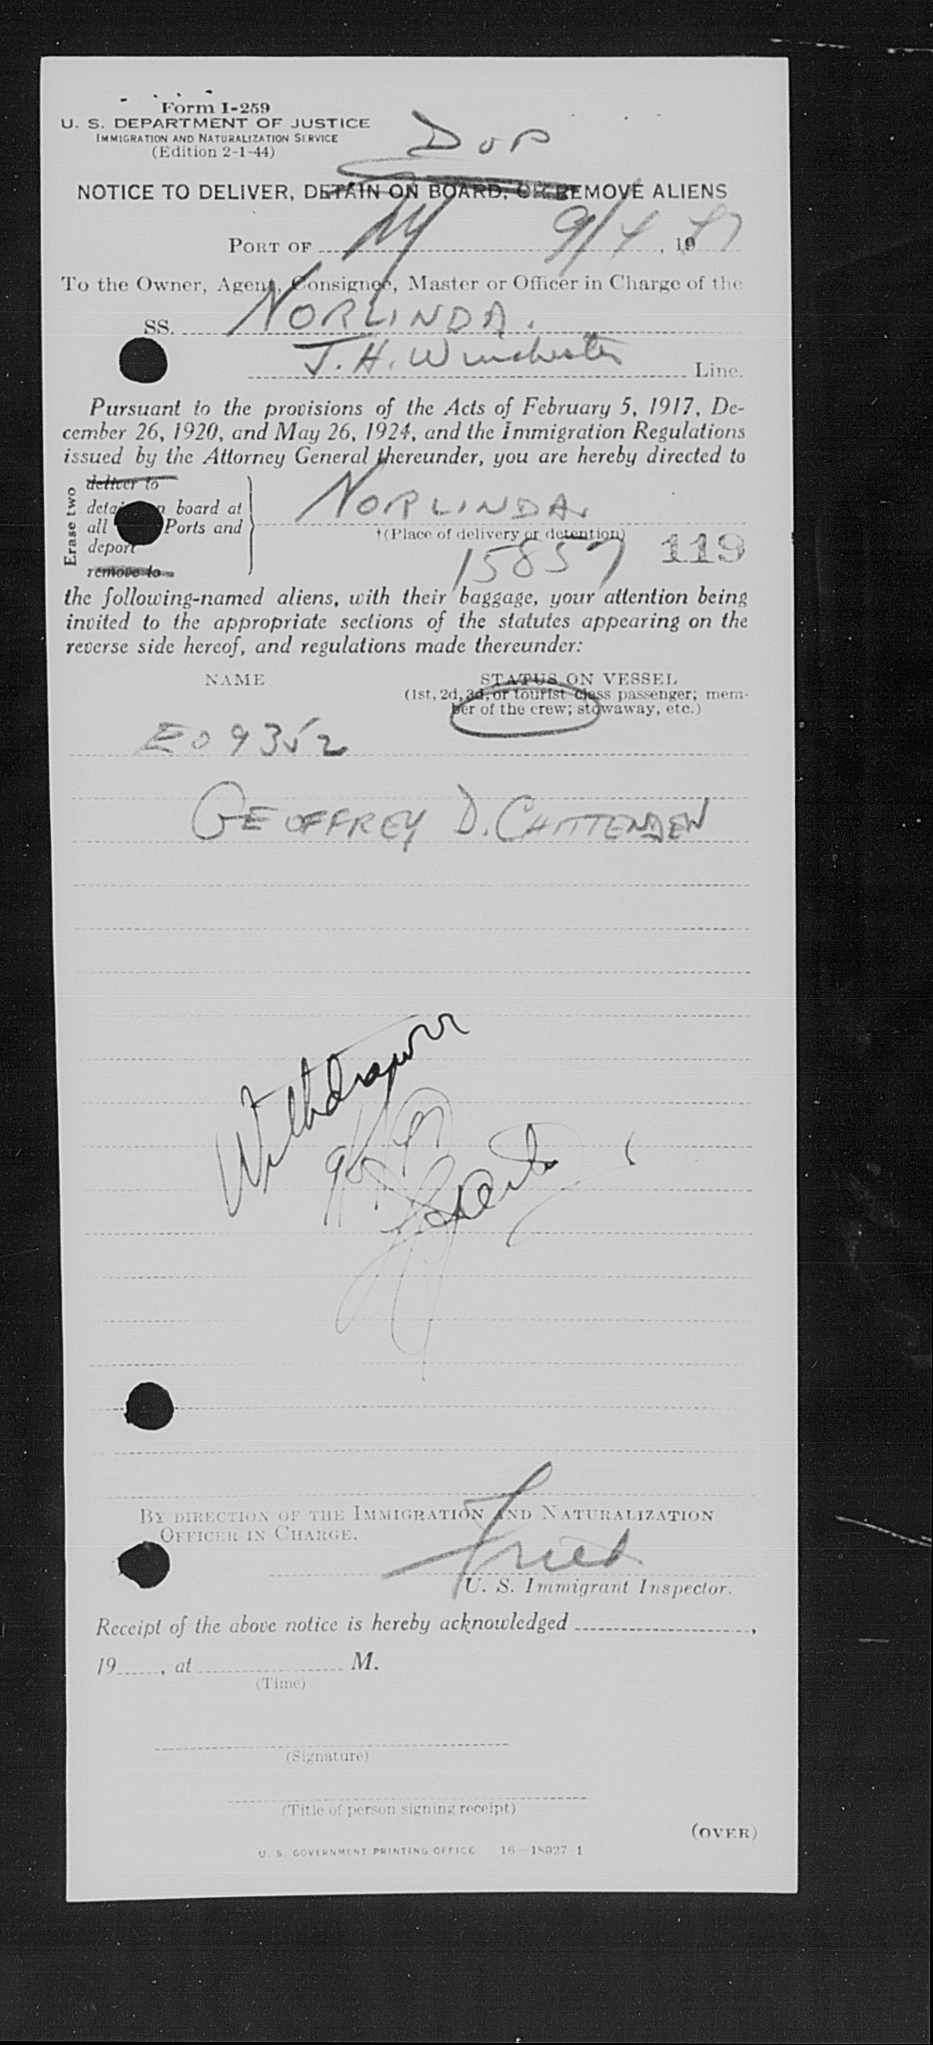 Form I-259
U. S. DEPARTMENT OF JUSTICE
IMMIGRATION AND NATURALIZATION SERVICE
(Edition 2-1-44)
Dup
NOTICE TO DELIVER, DETAIN ON BOARD, OR REMOVE ALIENS
PORT OF NY 9/4, 1947
To the Owner, Agent, Consignee, Master or Officer in Charge of the
SS. NORLINDA.
J. H. Winchester Line.
Pursuant to the provisions of the Acts of February 5, 1917, De-
cember 26, 1920, and May 26, 1924, and the Immigration Regulations
issued by the Attorney General thereunder, you are hereby directed to
Erase two
deliver to
detain on board at
all Ports and
deport
remove to
NORLINDA.
†(Place of delivery or detention)
15857 119
the following-named aliens, with their baggage, your attention being
invited to the appropriate sections of the statutes appearing on the
reverse side hereof, and regulations made thereunder:
NAME STATUS ON VESSEL
(1st, 2d, 3d, or tourist class passenger; mem-
ber of the crew; stowaway, etc.)
E09352
GEOFFREY D. CHITTENDEN
Withdrawn
By direction of the Immigration and Naturalization
Officer in Charge.
U. S. Immigrant Inspector.
Receipt of the above notice is hereby acknowledged ,
19 , at M.
(Time)
(Signature)
(Title of person signing receipt)
(OVER)
U. S. GOVERNMENT PRINTING OFFICE 16—18927-1